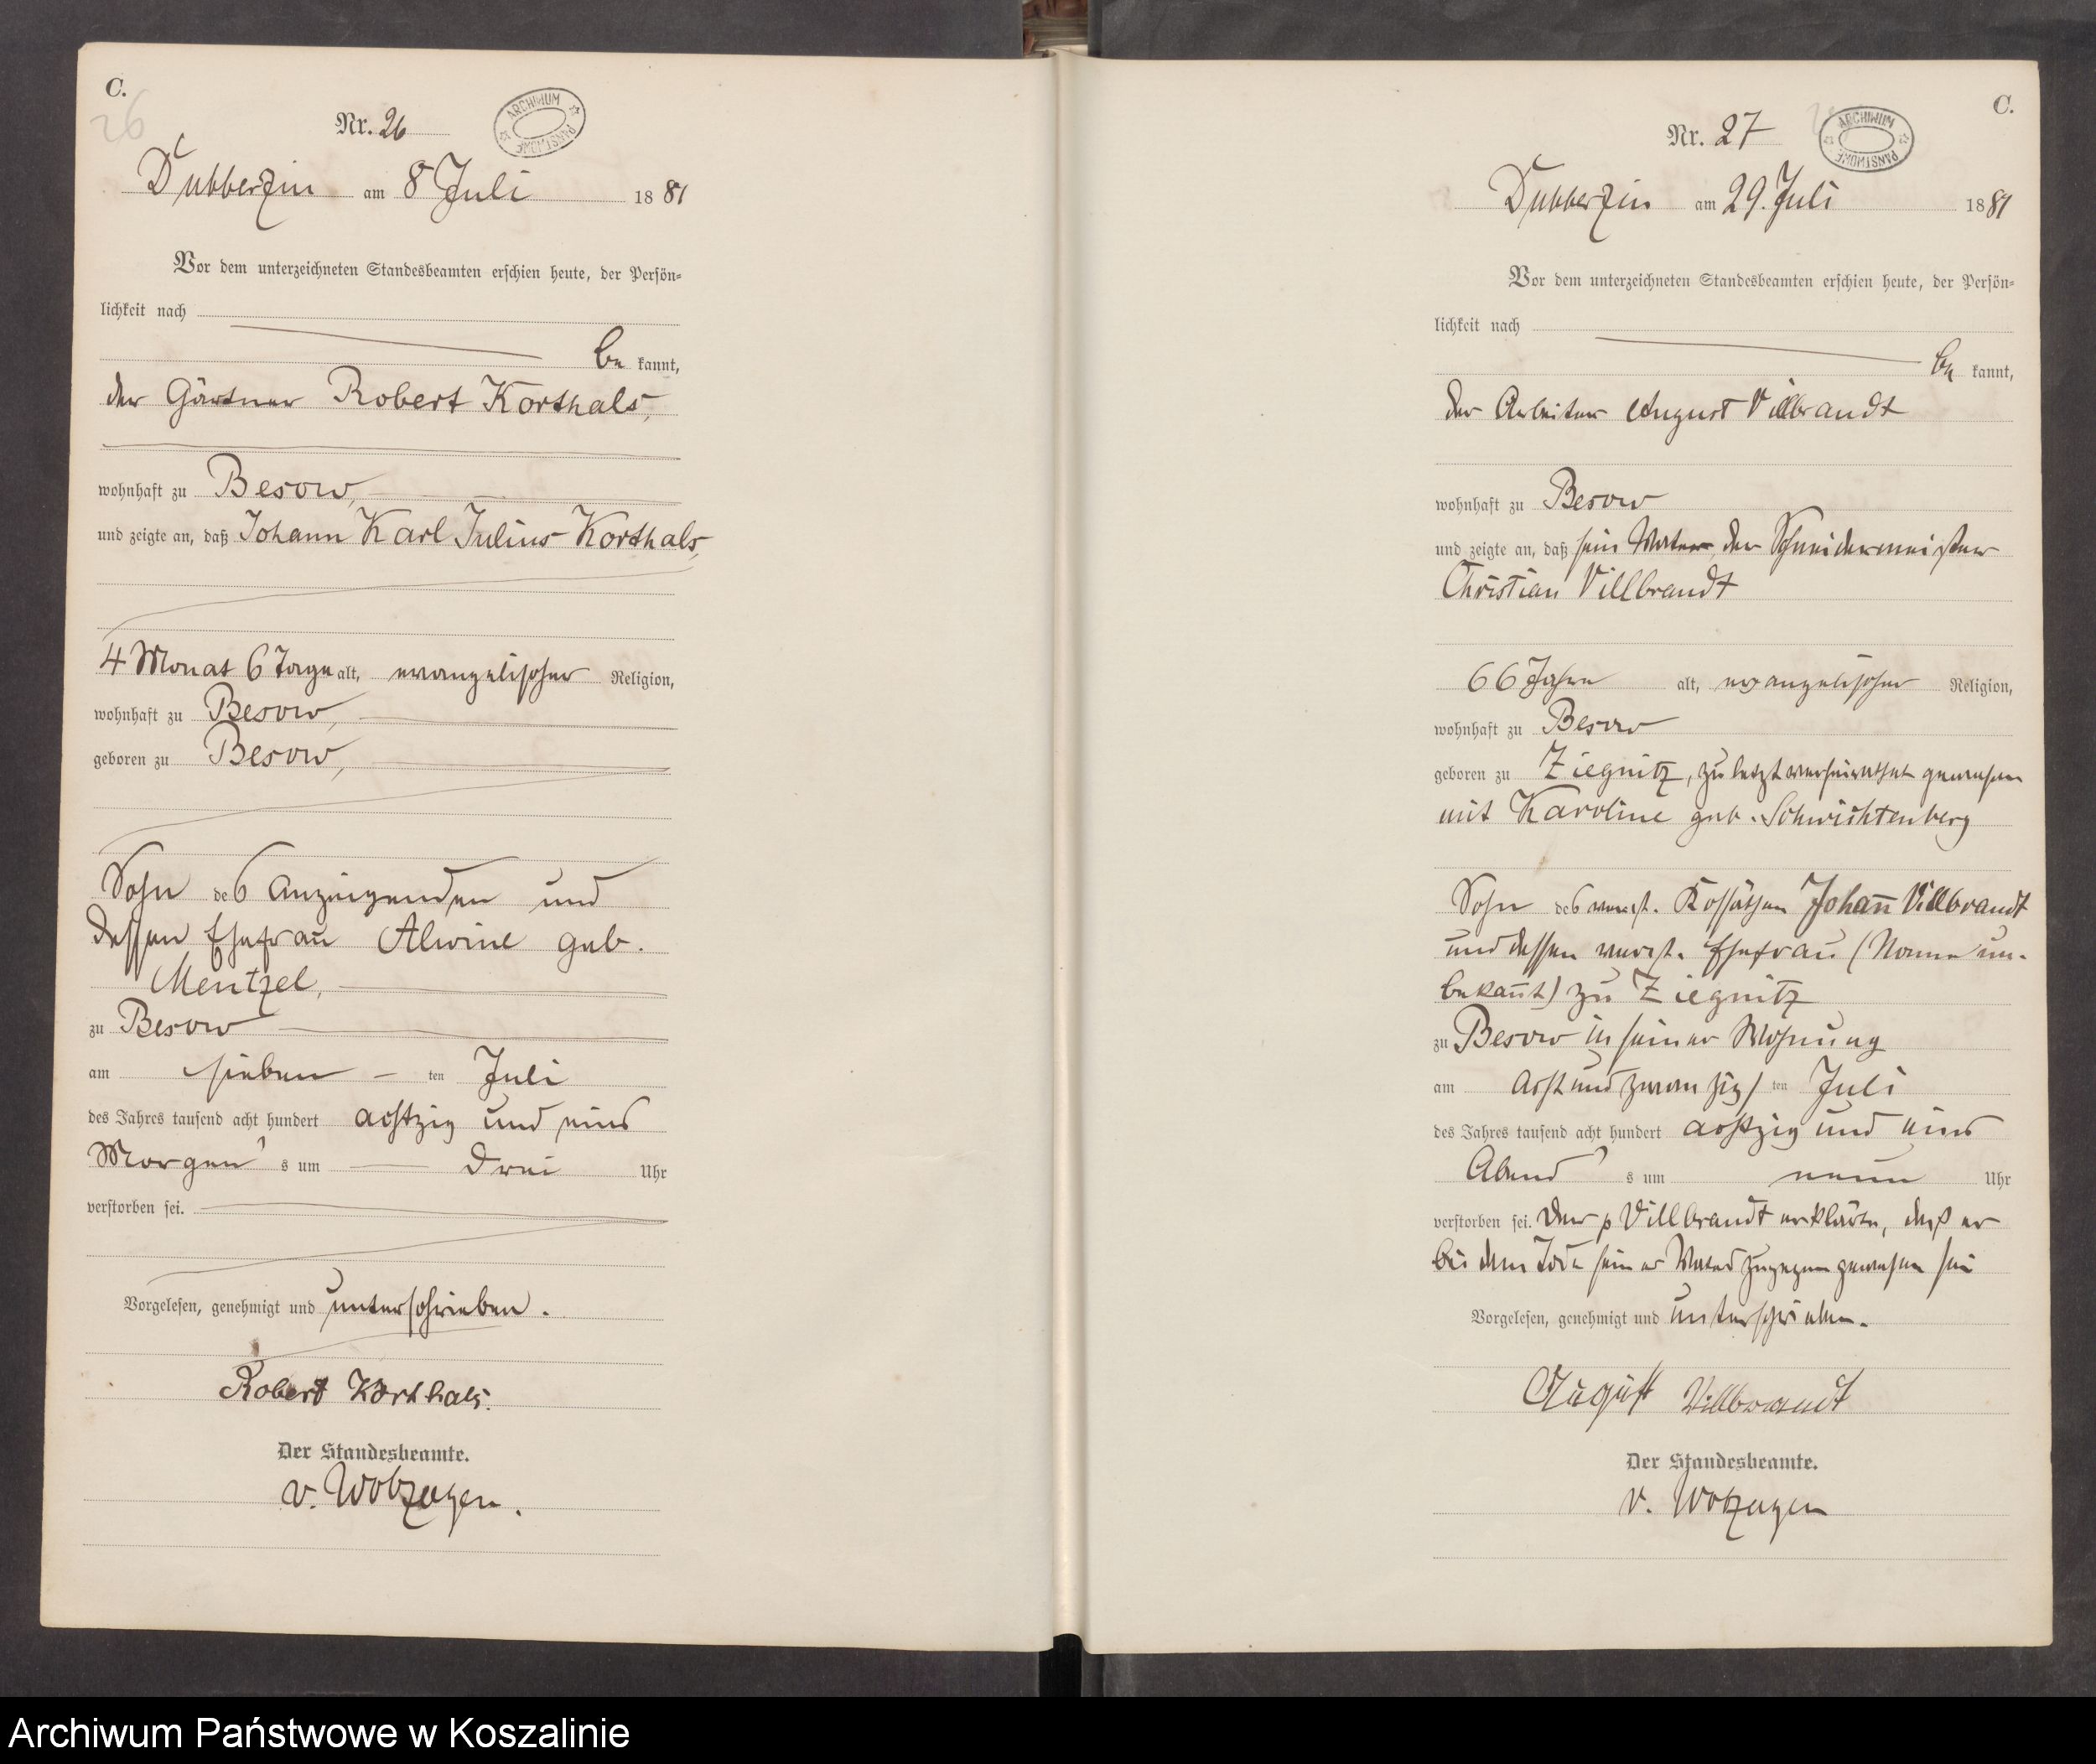 C.
26
Nr. 26
ARCHIWUM PAŃSTWOWE
Dubberzin am 8 Juli 1881
Vor dem unterzeichneten Standesbeamten erschien heute, der Persön-
lichkeit nach
be kannt,
der Gärtner Robert Korthals,
wohnhaft zu Besow,
und zeigte an, daß Johann Karl Julius Korthals,
4 Monat 6 Tage alt, evangelischer Religion,
wohnhaft zu Besow,
geboren zu Besow,
Sohn des Anzeigenden und
dessen Ehefrau Alwine geb.
Mentzel,
zu Besow
am sieben ten Juli
des Jahres tausend acht hundert achtzig und eins
Morgen s um drei Uhr
verstorben sei.
Vorgelesen, genehmigt und unterschrieben.
Robert Korthals.
Der Standesbeamte.
v. Wolzogen.
C.
Nr. 27
ARCHIWUM PAŃSTWOWE
Dubberzin am 29. Juli 1881
Vor dem unterzeichneten Standesbeamten erschien heute, der Persön-
lichkeit nach
be kannt,
der Arbeiter August Villbrandt
wohnhaft zu Besow
und zeigte an, daß sein Vater, der Schneidermeister
Christian Villbrandt
66 Jahre alt, evangelischer Religion,
wohnhaft zu Besow
geboren zu Ziegnitz, zuletzt verheirathet gewesen
mit Karoline geb. Schwichtenberg
Sohn des verst. Kossäthen Johan̄ Villbrandt
und dessen verst. Ehefrau (Name un-
bekan̄t) zu Ziegnitz
zu Besow in seiner Wohnung
am achtundzwanzig ten Juli
des Jahres tausend acht hundert achtzig und eins
Abend s um neun Uhr
verstorben sei. Der p Villbrandt erklärte, daß er
bei dem Tode seines Vaters zugegen gewesen sei
Vorgelesen, genehmigt und unterschrieben.
August Villbrandt
Der Standesbeamte.
v. Wolzogen
Archiwum Państwowe w Koszalinie